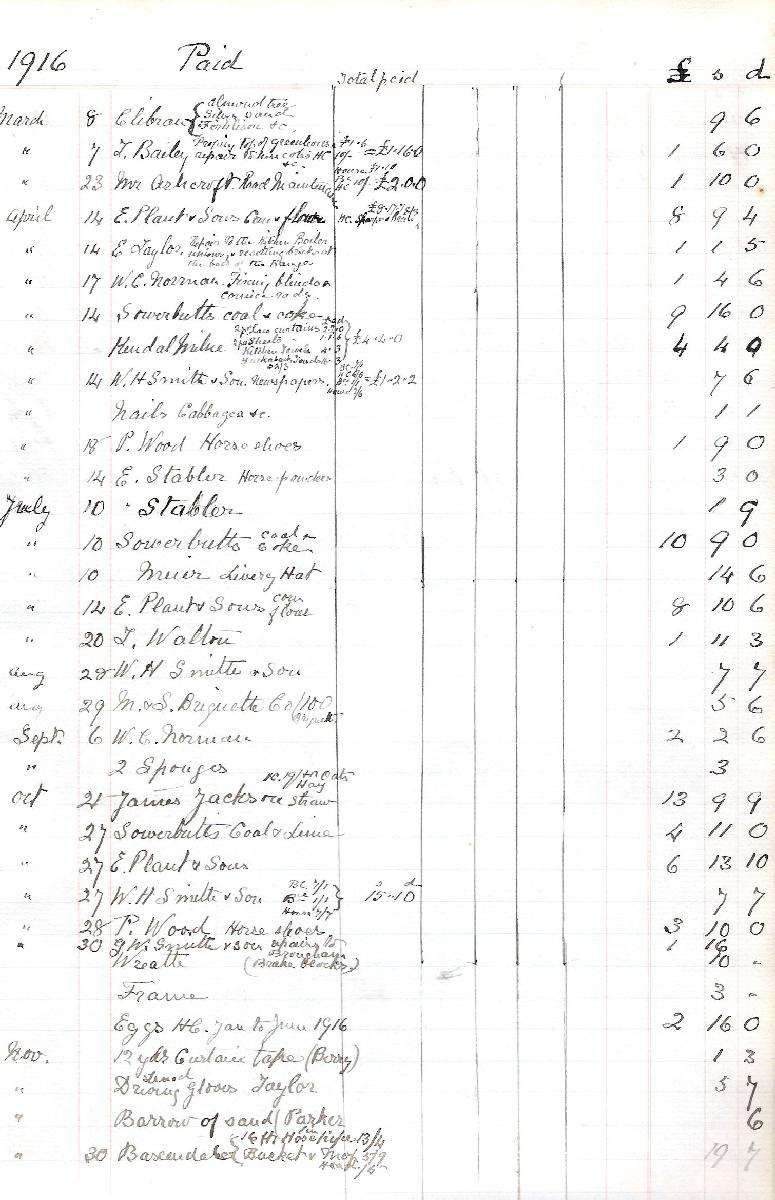 1916 Paid Total paid £ s d
March 8 Clibran { almond tree Silver sand Fertilizer &c 9 6
" 7 T. Bailey top of greenhouse repairs to &c = £1-16-0 1 6 0
" 23 Mr Ashcroft Road £2.0.0 1 10 0
April 14 E. Plant & Sons Corn & flour 8 9 4
" 14 E Taylor, Repair to the Kitchen Boiler 1 1 5
" 17 W.C. Norman Fixing blinds & cornice rods. 1 4 6
14 Sowerbutts coal & coke 9 16 0
" Kendal Milne curtains Sheets Kitchen Towels £4-4-0 4 4 0
" 14 W.H Smith & Son Newspapers. = £1-2-2 7 6
" Nails Cabbages &c. 1 1
" 18 P. Wood Horse shoes 1 9 0
" 14 E. Stabler Horse powders 3 0
July 10 " Stabler 1 9
" 10 Sowerbutts coal & coke 10 9 0
" 10 Meier Livery Hat 14 6
" 14 E. Plant & Sons corn flour 8 10 6
" 20 T. Walton 1 11 3
Aug 28 W.H Smith & Son 7 7
Aug 29 M. & S. Briquette Co /100 5 6
Sept. 6 W.C. Norman 2 2 6
" 2 Sponges 3
Oct 21 James Jackson Oats Hay Straw 13 9 9
" 27 Sowerbutts Coal & Lime 4 11 0
" 27 E. Plant & Sons 6 13 10
" 27 W.H Smith & Son House 7/7 } 15-10 7 7
" 28 P. Wood Horse shoes 3 10 0
" 30 G.W. Smith & Son repairs to Brougham (Brake Blocks) 1 16
Wreath 10 -
Frame 3 -
Eggs HC. Jan to June 1916 2 16 0
Nov. 12 yds Curtain tape (Berry) 1 3
" Driving gloves Taylor 5 7
" Barrow of sand (Parker 6
" 30 Baxendale { Hose pipe 13/4 Bucket & Mop 5/9 19 7